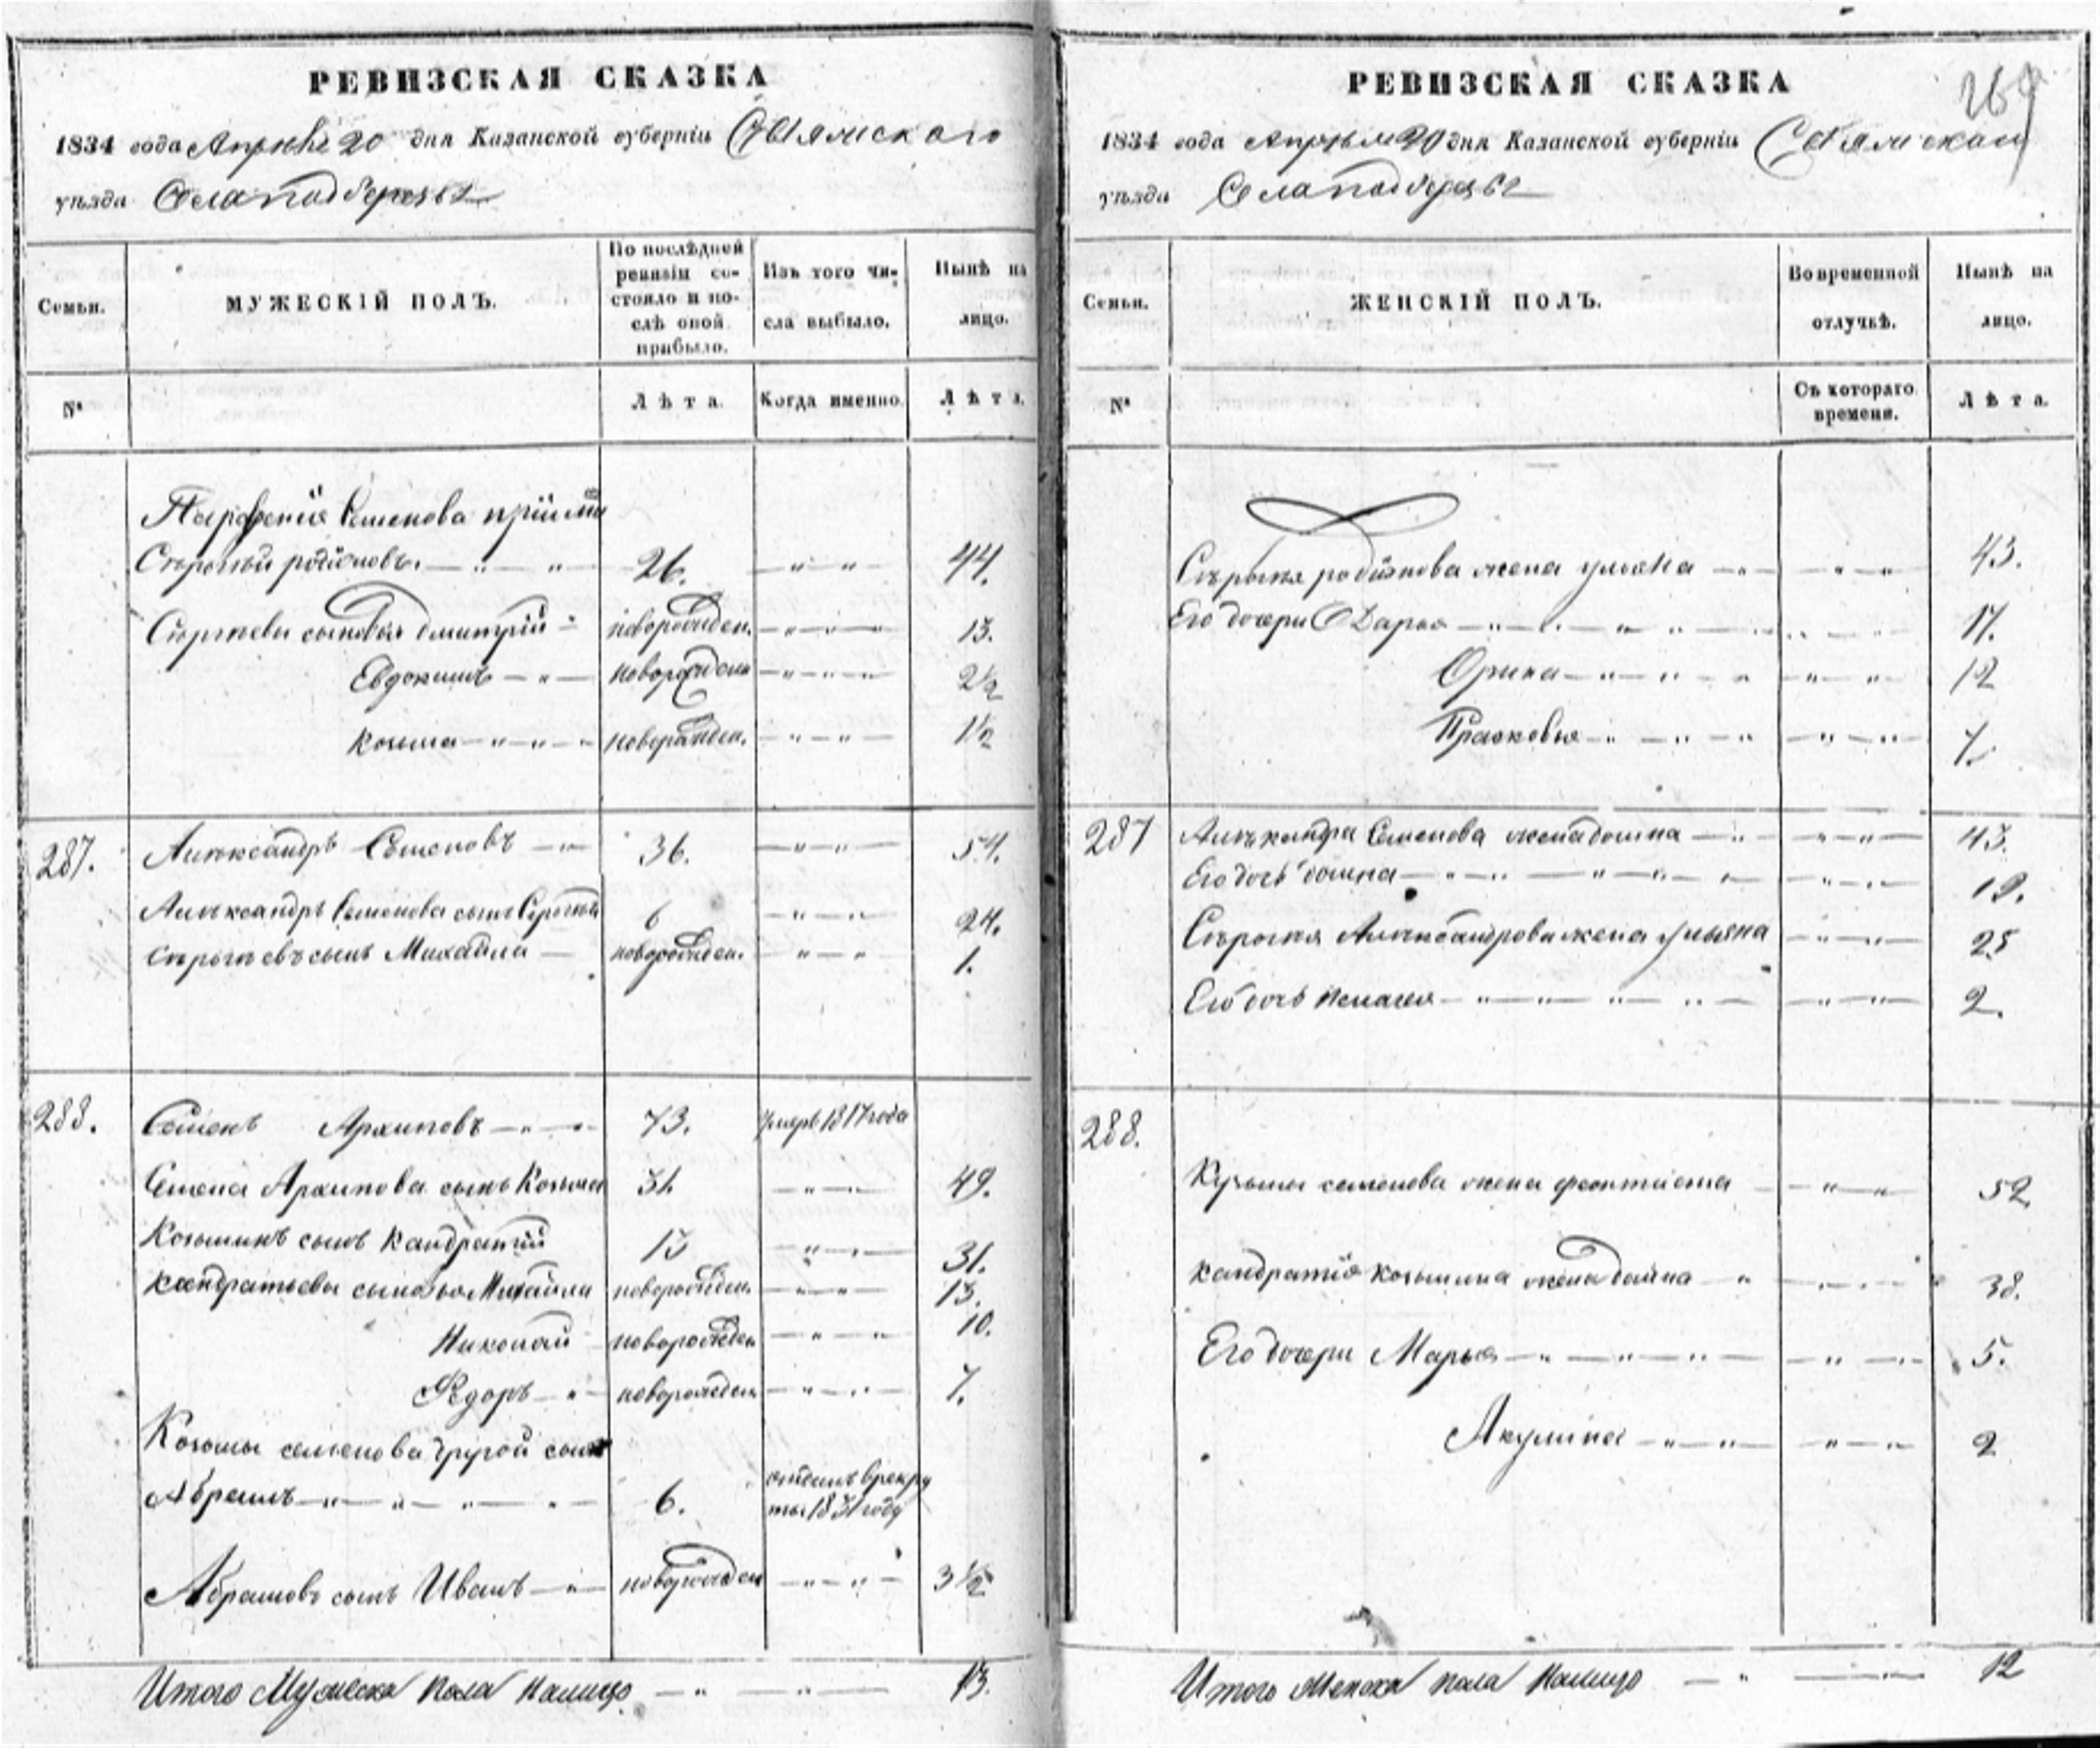 РЕВИЗСКАЯ СКАЗКА
1834 года Апреля 20 дня Казанской губерніи Свіяжского
уѣзда Села Подберезья
Семьи.
МУЖЕСКІЙ ПОЛЪ.
По послѣдней ревизіи состояло и послѣ оной прибыло.
Изъ того числа выбыло.
Нынѣ на лицо.
№
Лѣта.
Когда именно.
Лѣта.
Семенова
Сергѣй родіоновъ 26. 44.
Сергѣевы сыновья дмитрій новорожден. 13.
Евдокимъ новорожден 2½
Козьма новорожден. 1½
287. Александръ Семеновъ 36. 54.
Александръ Семенова сынъ Сергѣй 6 24.
Сергѣевъ сынъ Михайла новорожден. 1.
288. Семенъ Архиповъ 73. умеръ 1817 года
Семена Архипова сынъ Козьма 31. 49.
Козьминъ сынъ Кандратій 13 31.
Кандратьевы сыновья Михайла новорожден. 13.
Николай новорожден 10.
Федоръ новорожден 7.
Козьмы семенова другой сынъ
Абрамъ 6. отданъ в рекру
ты 1831 году
Абрамовъ сынъ Иванъ новорожден 3½
Итого Мужеска пола налицо 13.
РЕВИЗСКАЯ СКАЗКА
1834 года Апреля 20 дня Казанской губерніи Свіяжскаго
уѣзда Села подберезья
Семьи.
ЖЕНСКІЙ ПОЛЪ.
Во временной отлучкѣ.
Нынѣ на лицо.
№
Съ котораго времени.
Лѣта.
Сергѣя родіонова жена ульяна 43.
Его дочери Дарья 17.
Орина 12
Прасковья 7.
287 Александра Семенова жена домна 43.
Его дочь домна 19.
Сергѣя Александрова жена ульяна 25
Его дочь 2.
288.
Кузьмы семенова жена 52
Кандратія козьмина жена домна 38.
Его дочери Марья 5.
Акулина 2
Итого Женска пола налицо 12